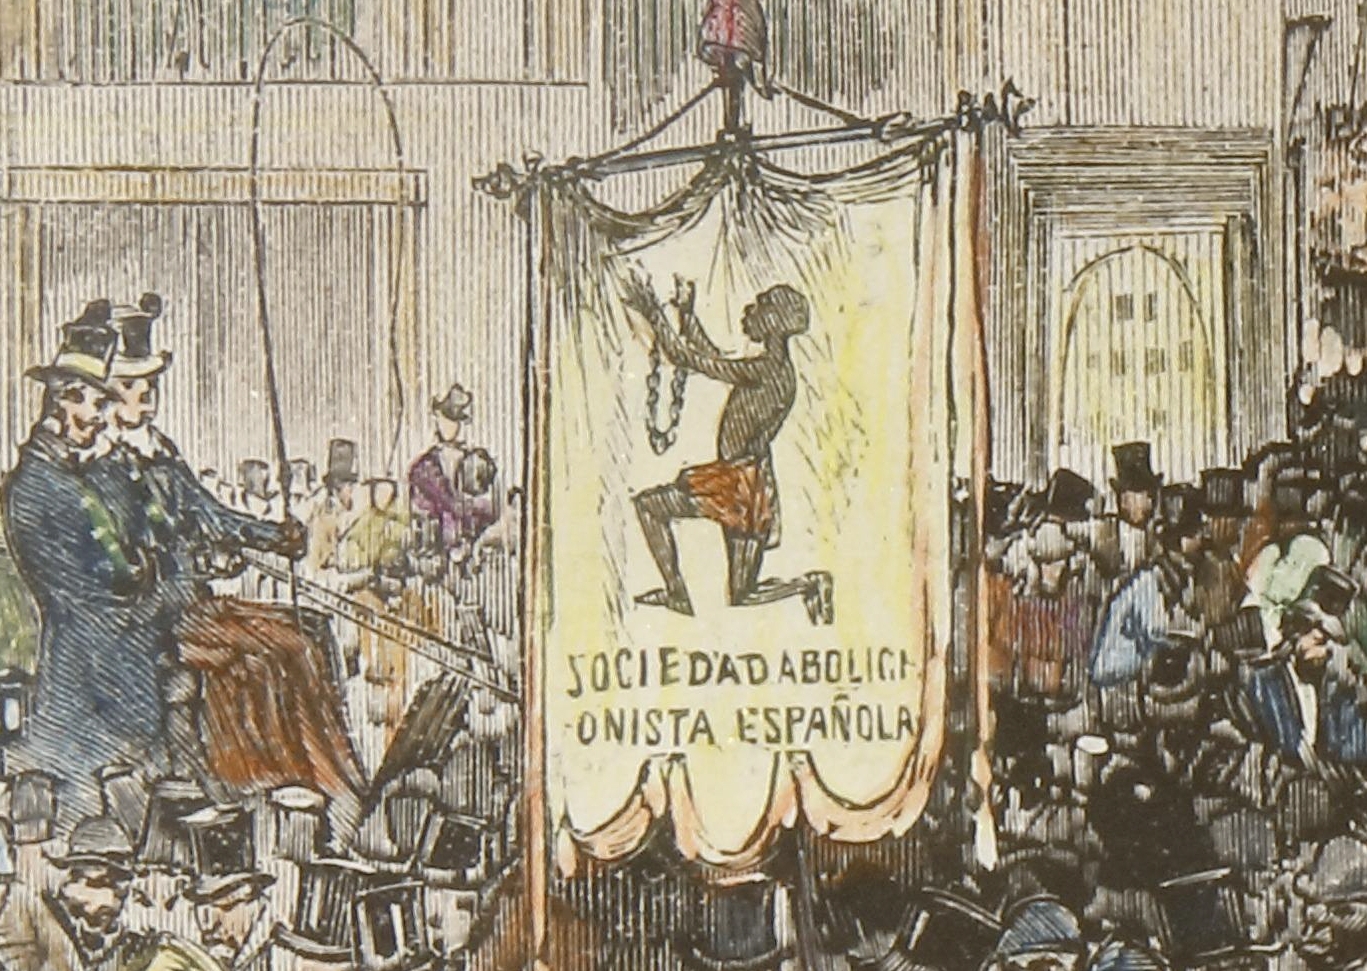 SOCIEDAD ABOLICI-
ONISTA ESPAÑOLA